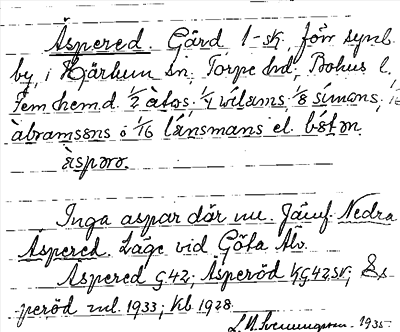 Äspered. Gård, 1-sk, förr symb.
by, i Hjärtum sn, Torpe hd; Bohus l.
Fem hemd. 1/2 àtəs; 1/4 wilams; 1/8 simons; 1/16
àbramsəns o 1/16 länsmans el.
àspərə.
Inga aspar där nu. Jämf. Nedra
Äspered. Läge vid Göta Älv.
Äspered G42; Äsperöd KG42SV; Es-
peröd ml. 1933; kb 1928.
1935.